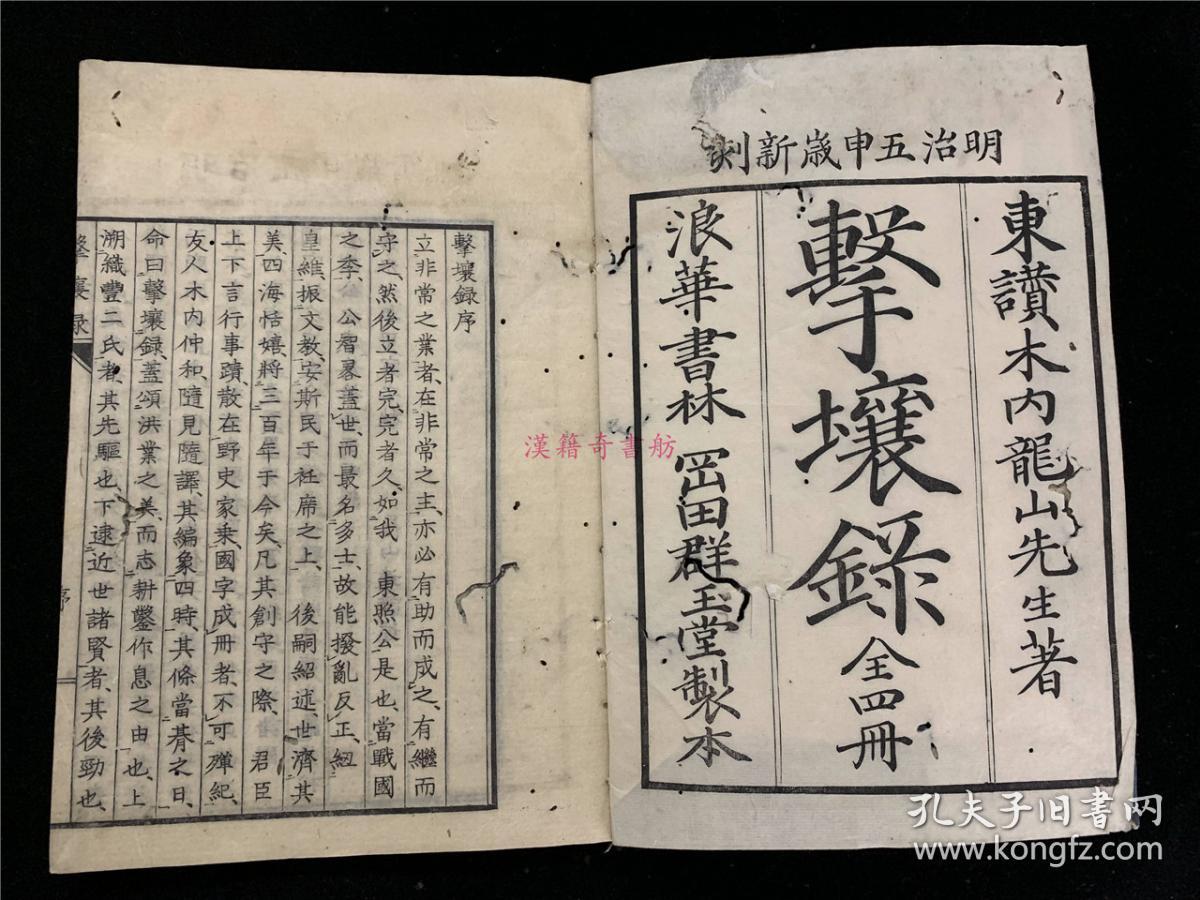 明治五申歲新刻
東讚木内龍山先生著
擊壤錄 全四冊
浪華書林 岡田群玉堂製本
擊壤録序
立非常之業者、在非常之主、亦必有助而成之、有繼而
守之、然後立者完、完者久、如我 東照公是也、當戰國
之季、公智畧蓋世、而最名多士、故能撥亂反正、紐
皇維、振文教、安斯民于衽席之上、後嗣紹述、世濟其
美、四海恬嬉、將三百年于今矣、凡其創守之際、君臣
上下言行事蹟、散在野史家乗、國字成冊者、不可殫紀、
友人木内仲和、隨見隨譯、其編象四時、其條當朞之日、
命曰擊壤録、蓋頌洪業之美、而志耕鑿作息之由也、上
溯織豐二氏者、其先驅也、下逮近世諸賢者、其後勁也、
擊壤録
序
漢籍奇書舫
孔夫子旧书网
www.kongfz.com